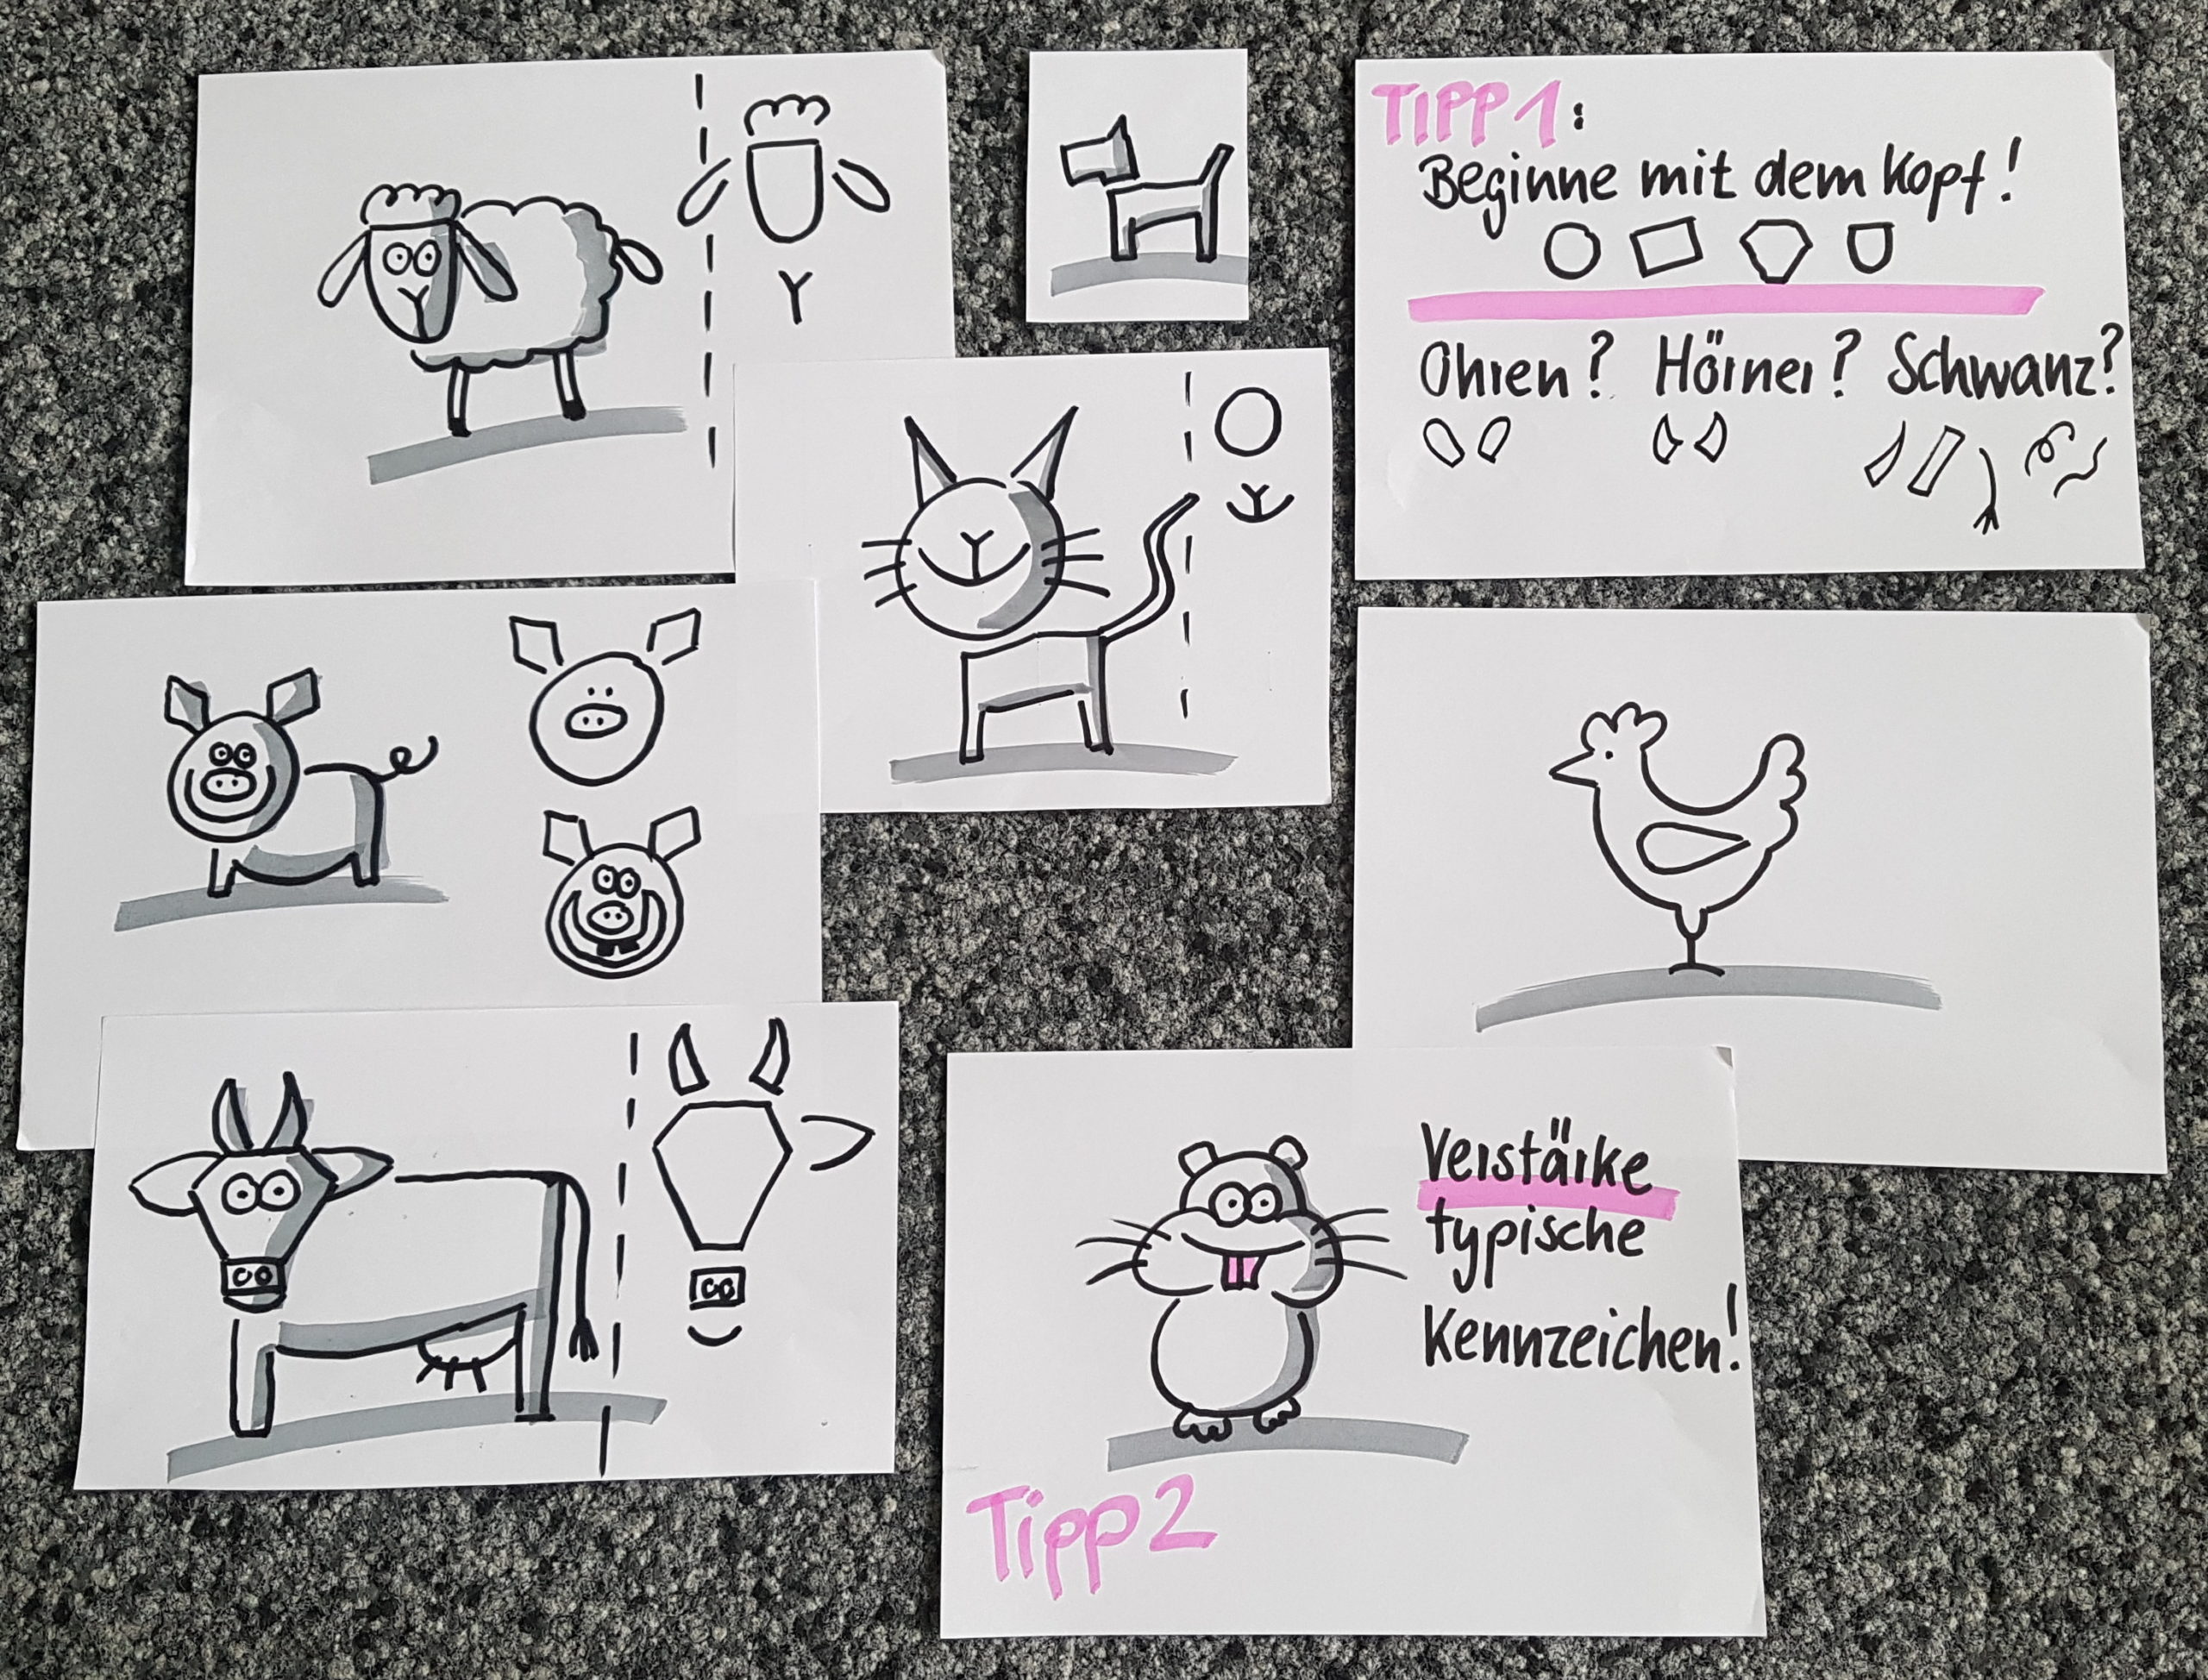 TIPP 1:
Beginne mit dem Kopf!
Ohren? Hörner? Schwanz?
Verstärke
typische
Kennzeichen!
Tipp 2